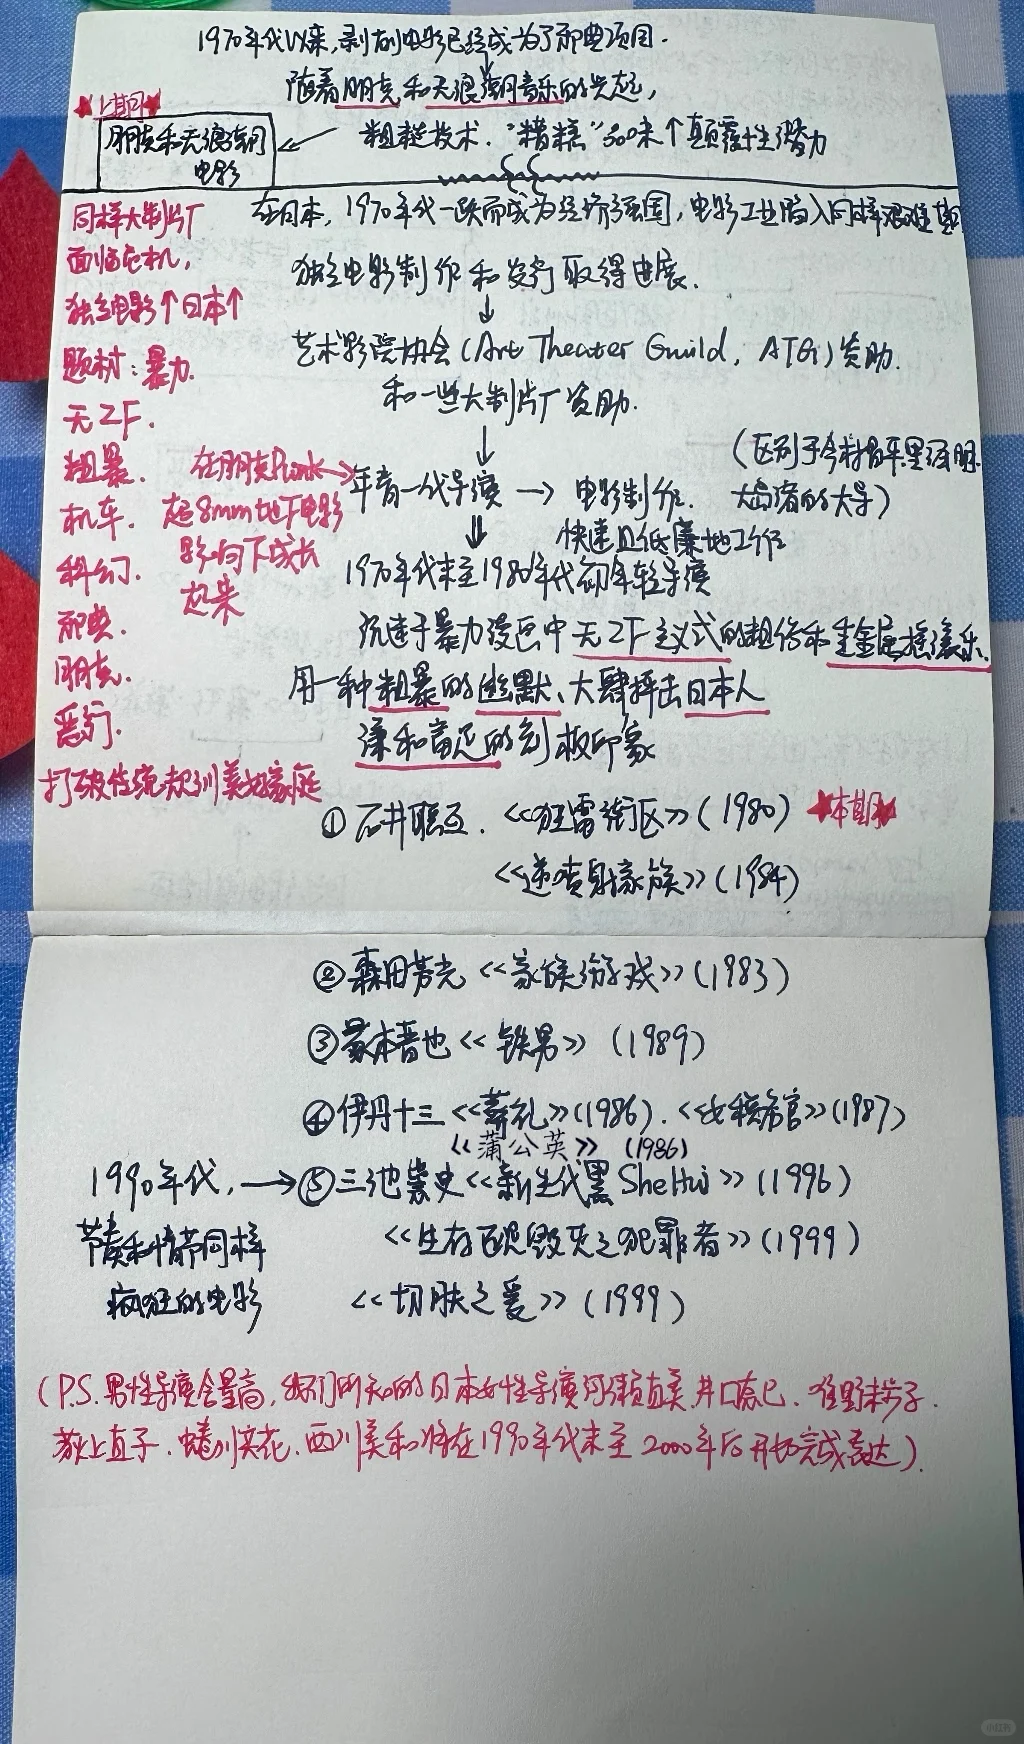 1970年代以来,剥削电影已经成为了邪典项目.
随着朋克和无浪潮音乐的兴起,
上期
朋克和无浪潮
电影
粗糙技术."糟糕"品味个颠覆性潜力
在日本,1970年代一跃而成为经济强国,电影工业陷入同样艰难期
独立电影制作和发行取得进展.
艺术影院协会(Art Theater Guild, ATG)资助.
和一些大制片厂资助.
年青一代导演 → 电影制作.
(区别于今村昌平黑泽明
大岛渚的大导)
快速且低廉地工作
1970年代末至1980年代初年轻导演
沉迷于暴力漫画中无ZF主义式的粗俗和重金属摇滚乐.
用一种粗暴的幽默、大肆抨击日本人
谦和富足的刻板印象
同样大制片厂
面临危机,
独立电影↑日本↑
题材:暴力.
无ZF.
粗暴.
机车.
科幻.
邪典.
朋克.
恶行.
打破传统规训美好家庭
在朋克Punk→
超8mm地下电影
影响下成长
起来
①石井聪亙.《狂雷街区》(1980)
本期
《逆喷射家族》(1984)
②森田芳光《家族游戏》(1983)
③冢本晋也《铁男》(1989)
④伊丹十三《葬礼》(1986).《女税务官》(1987)
《蒲公英》(1986)
1990年代,→⑤三池崇史《新生代黑SheHui》(1996)
节奏和情节同样
疯狂的电影
《生存还是毁灭之犯罪者》(1999)
《切肤之爱》(1999)
(P.S.男性导演含量高,我们所知的日本女性导演河濑直美.井口奈己.唯野未步子.
荻上直子.蜷川实花.西川美和将在1990年代末至2000年后开始完成表达).
小红书